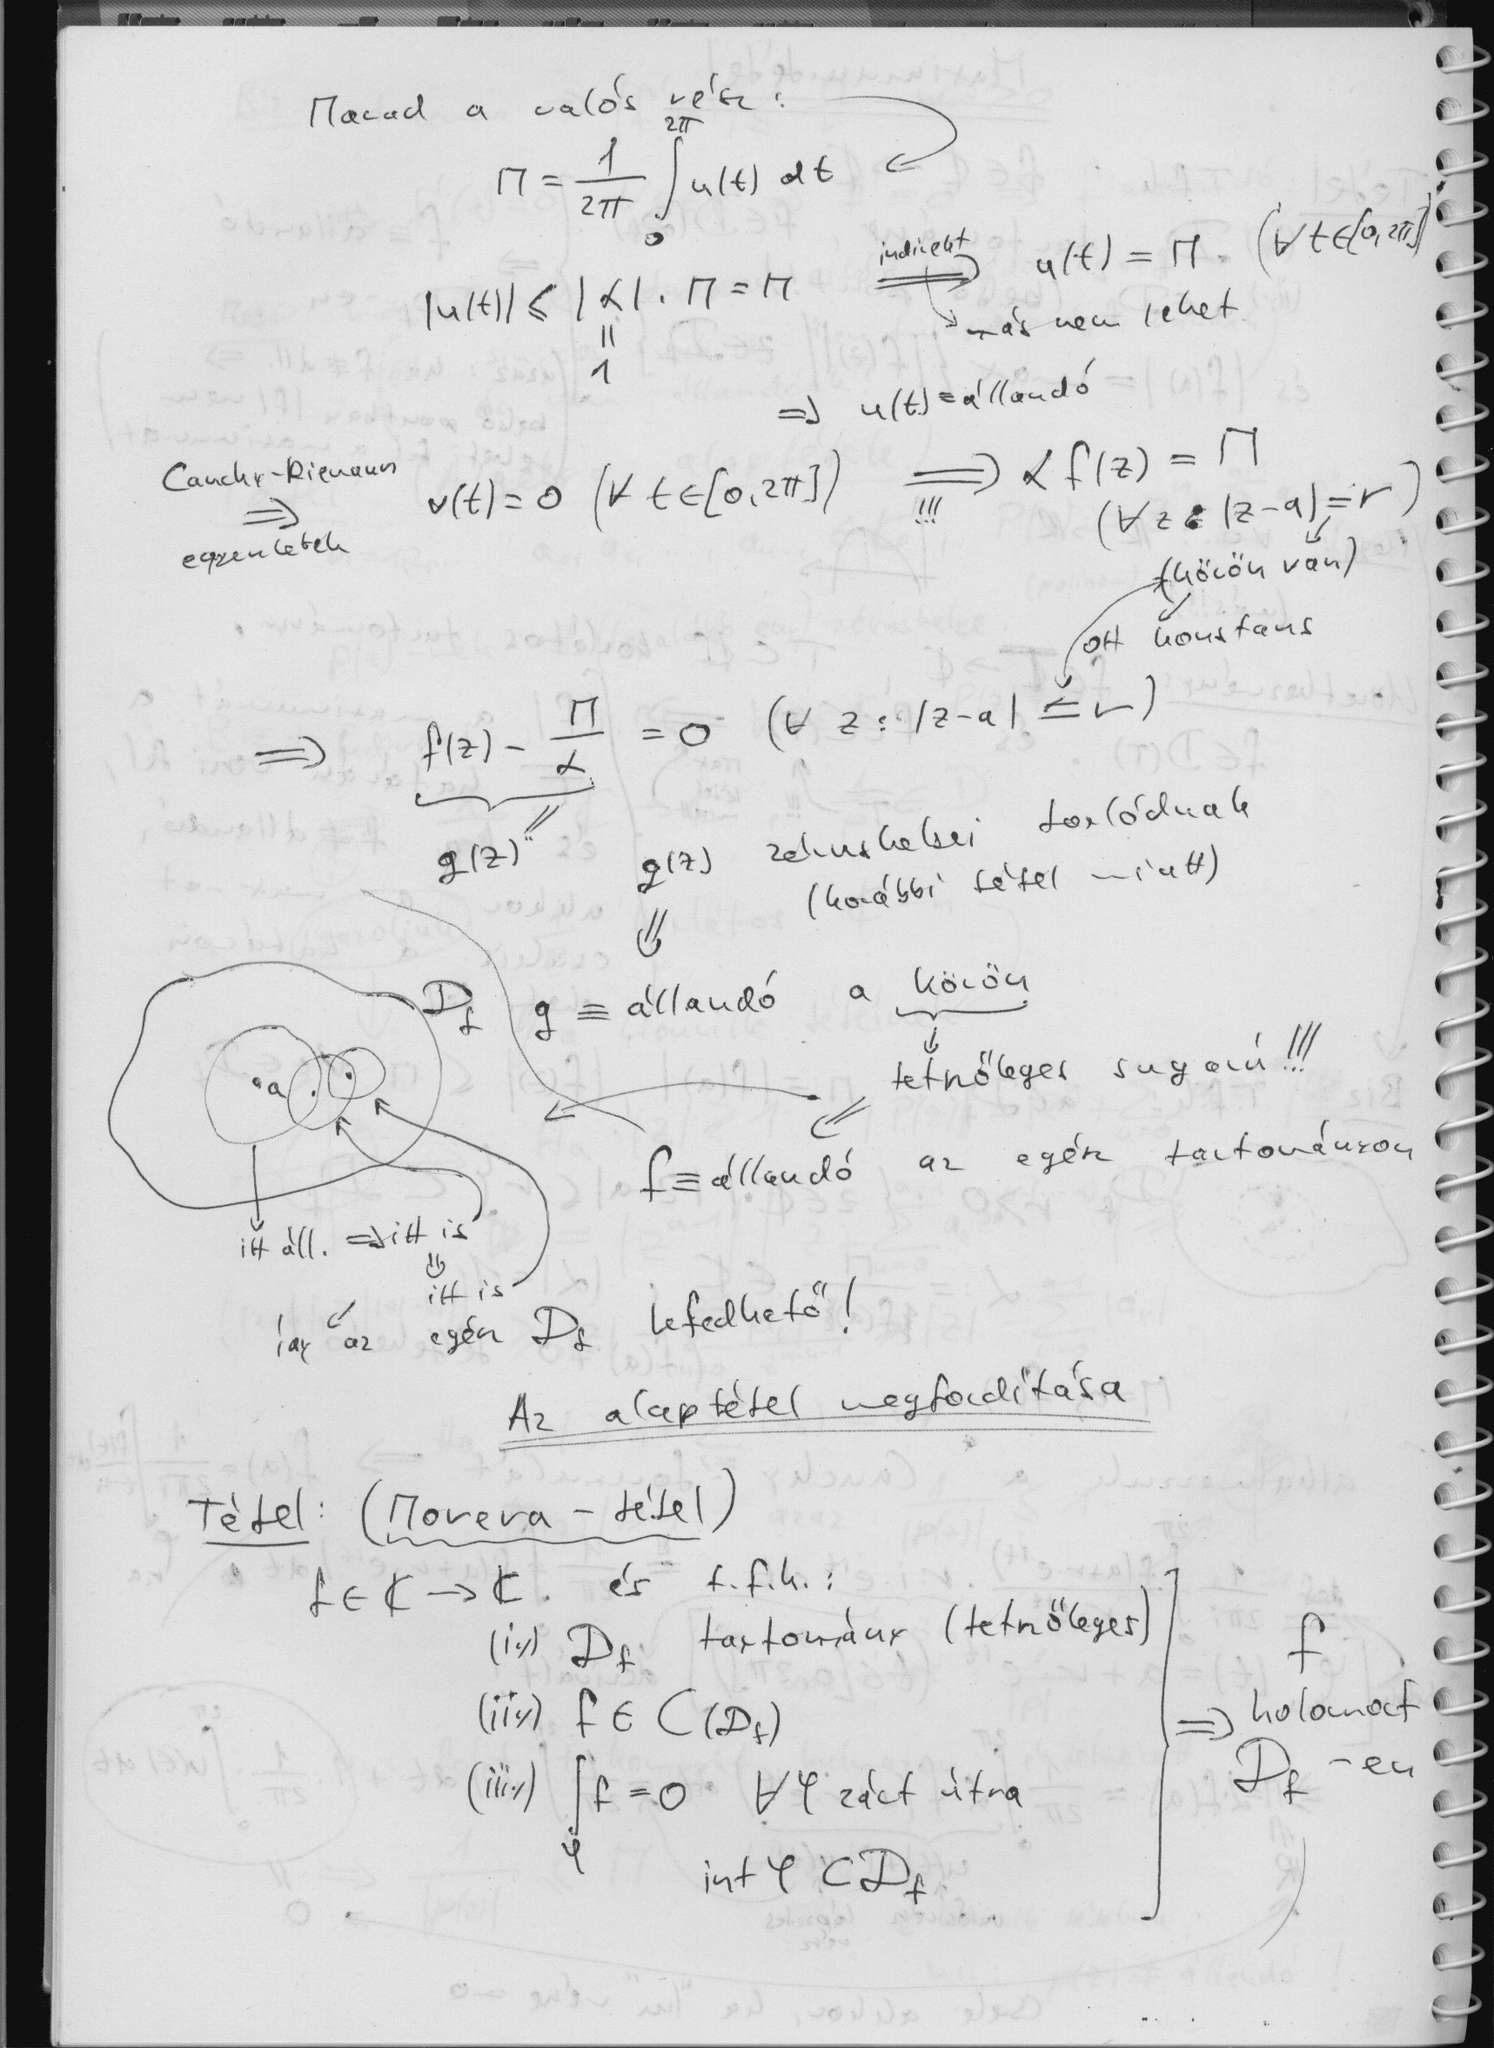 Marad a valós rész:
M = 1/2π ∫₀^2π u(t) dt
|u(t)| ≤ |α| · M = M indirekt ⟹ u(t) = M. (∀ t∈[0,2π])
|| más nem lehet
1
⇒ u(t) ≡ állandó
Cauchy-Riemann ⇒ egyenletek v(t) = 0 (∀ t∈[0,2π]) ⟹ !!! α f(z) = M
(∀ z : |z-a| = r)
(körön van)
ott konstans
⟹ f(z) - M/α = 0 (∀ z : |z-a| ≤ r)
g(z) := g(z) zérushelyei torlódnak
(korábbi tétel miatt)
⇓
D_f g ≡ állandó a körön
a tetszőleges sugarú!!!
f ≡ állandó az egész tartományon
itt áll. ⇒ itt is
⇓
itt is
így az egész D_f lefedhető!
Az alaptétel megfordítása
Tétel: (Morera - tétel)
f ∈ ℂ → ℂ és t.f.h.:
(i) D_f tartomány (tetszőleges)
(ii) f ∈ C(D_f)
(iii) ∫_φ f = 0 ∀ φ zárt útra
int φ ⊂ D_f
⇒ f
holomorf
D_f -en